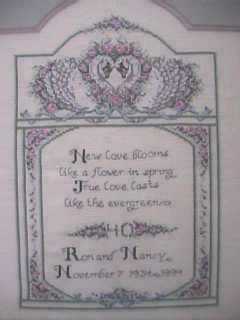 New Love Blooms
like a flower in spring
True Love Lasts
like the evergreens
40
Ron and Nancy
November 7 1954-1994